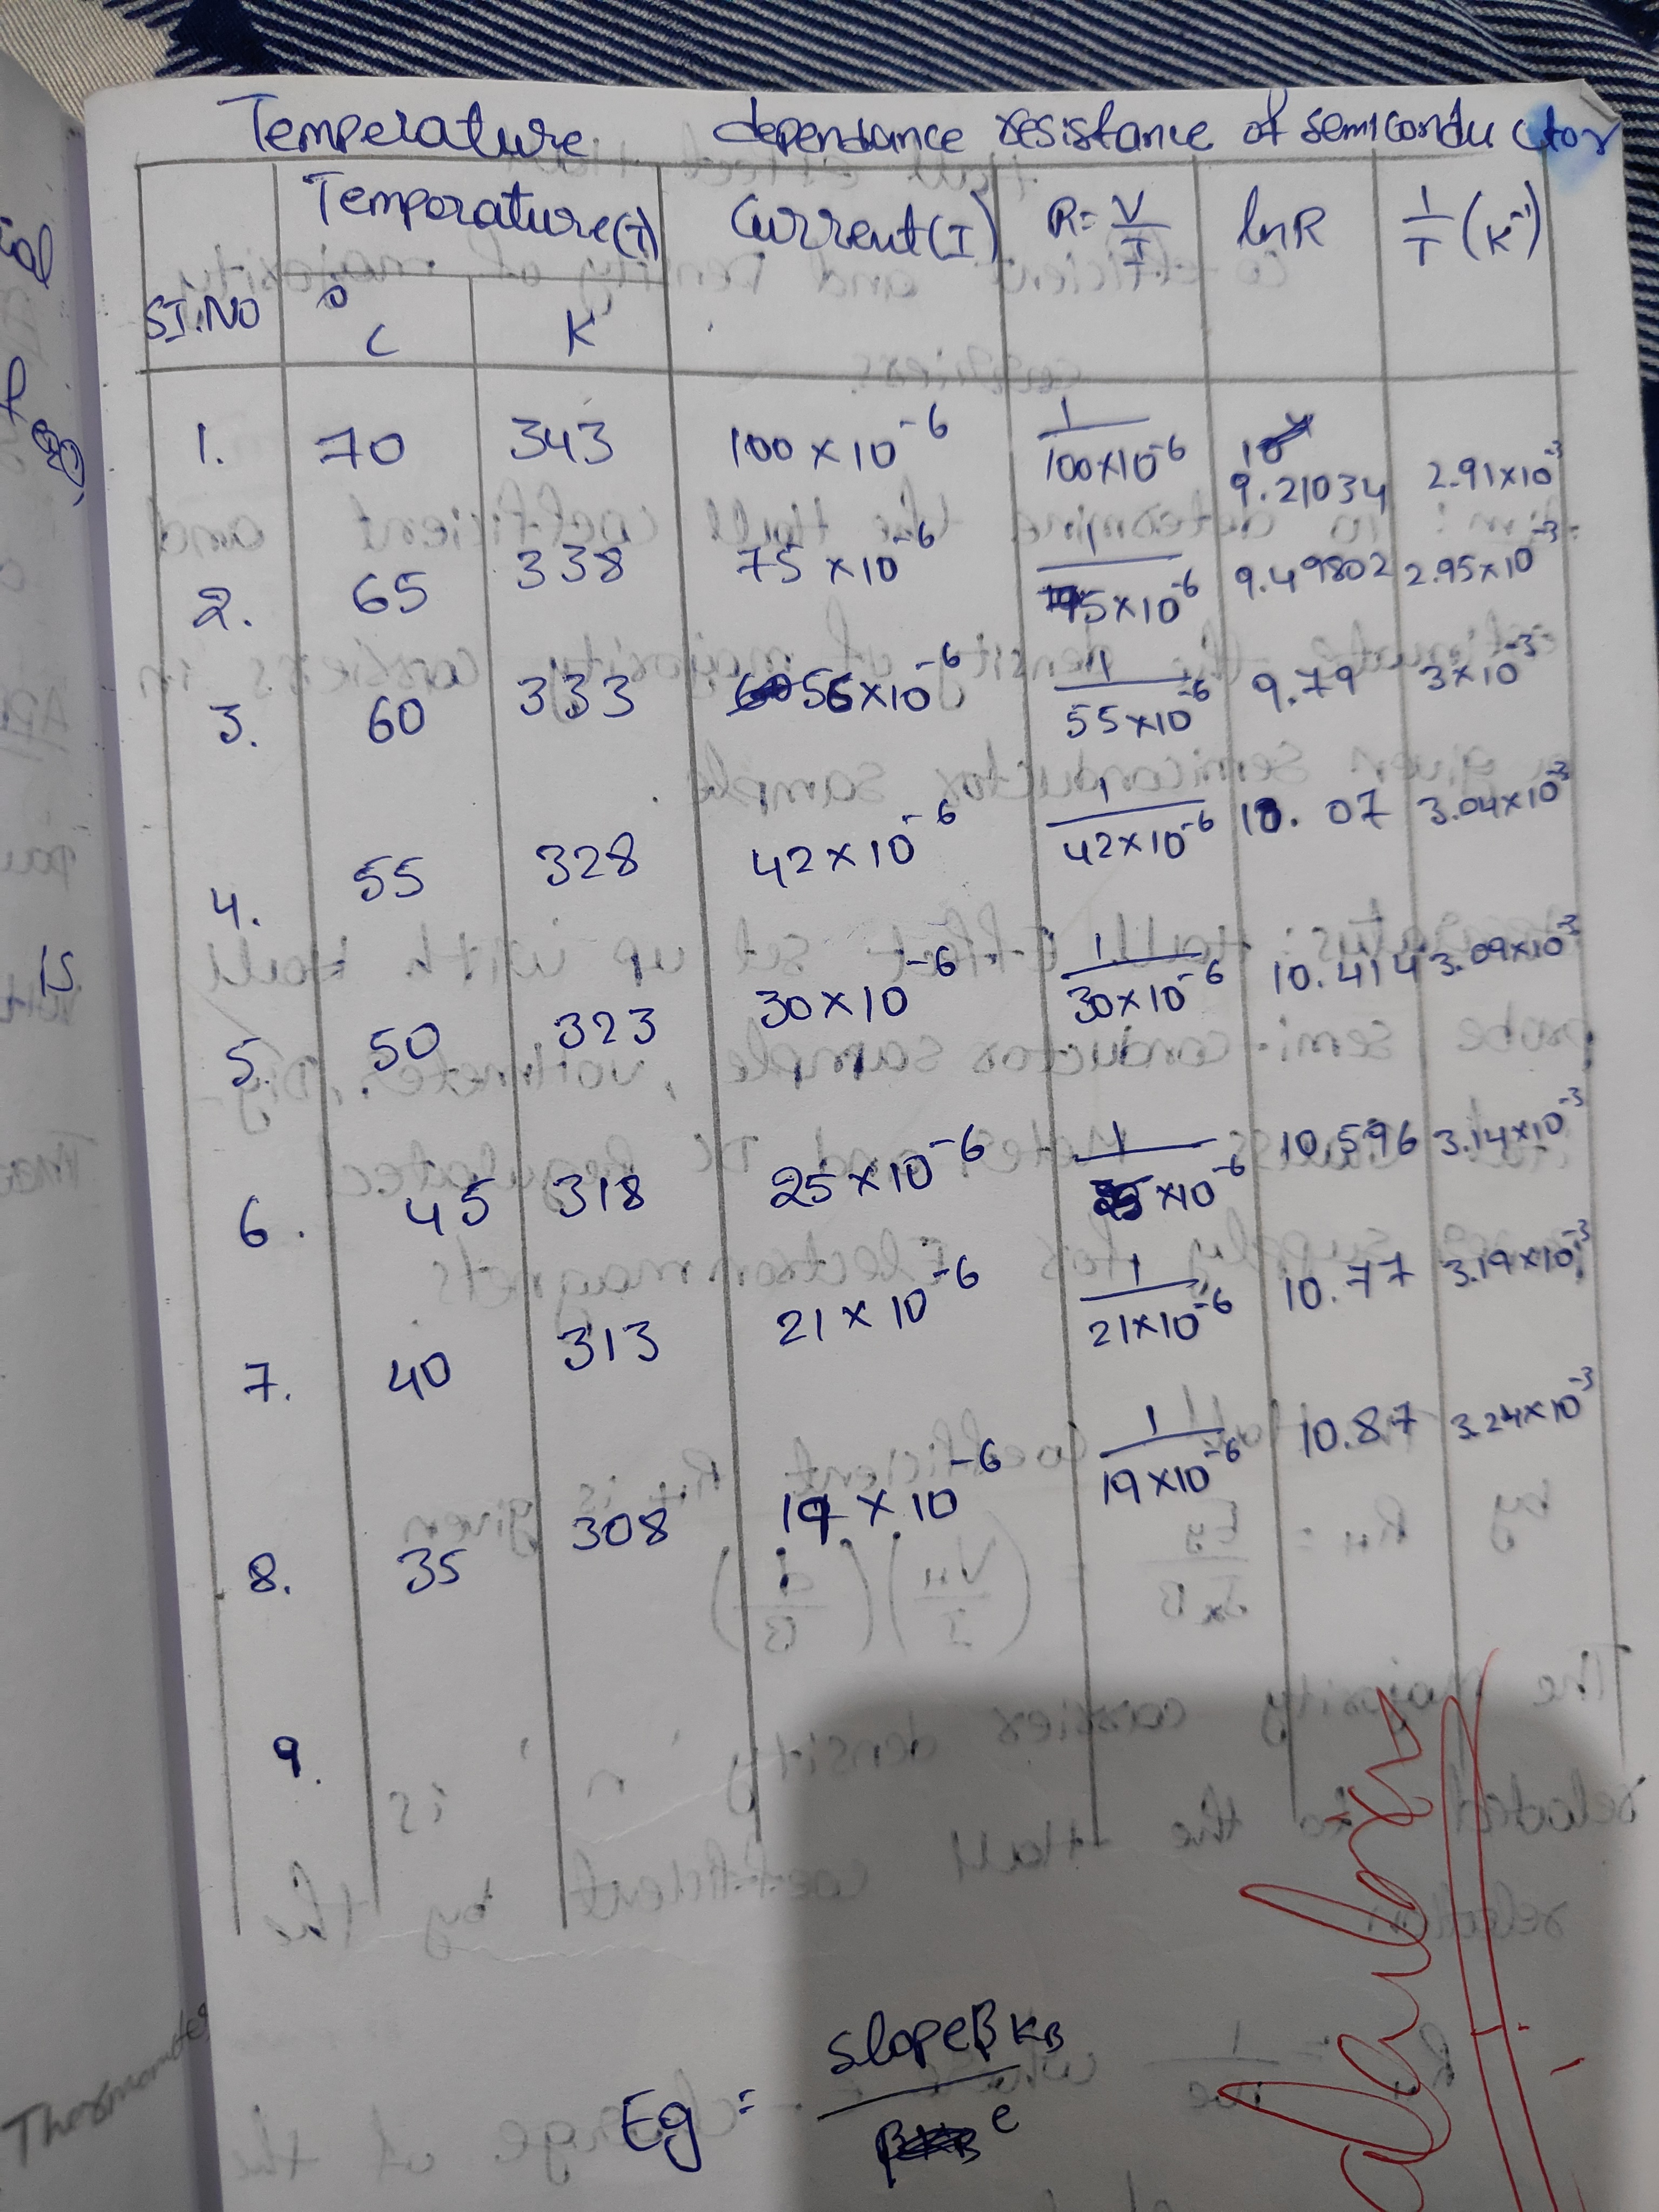 Temperature dependance resistance of semiconductor
SI.NO Temporature(T) Current(I) R=V/I lnR 1/T (K⁻¹)
°C K
1. 70 343 100×10⁻⁶ 1/100×10⁻⁶ 9.21034 2.91×10⁻³
2. 65 338 75×10⁻⁶ /75×10⁻⁶ 9.49802 2.95×10⁻³
3. 60 333 56×10⁻⁶ 1/55×10⁻⁶ 9.79 3×10⁻³
4. 55 328 42×10⁻⁶ 1/42×10⁻⁶ 10.07 3.04×10⁻³
5. 50 323 30×10⁻⁶ 1/30×10⁻⁶ 10.414 3.09×10⁻³
6. 45 318 25×10⁻⁶ 1/25×10⁻⁶ 10.596 3.14×10⁻³
7. 40 313 21×10⁻⁶ 1/21×10⁻⁶ 10.77 3.19×10⁻³
8. 35 308 19×10⁻⁶ 1/19×10⁻⁶ 10.87 3.24×10⁻³
9.
Eg = slopeβ KB / e